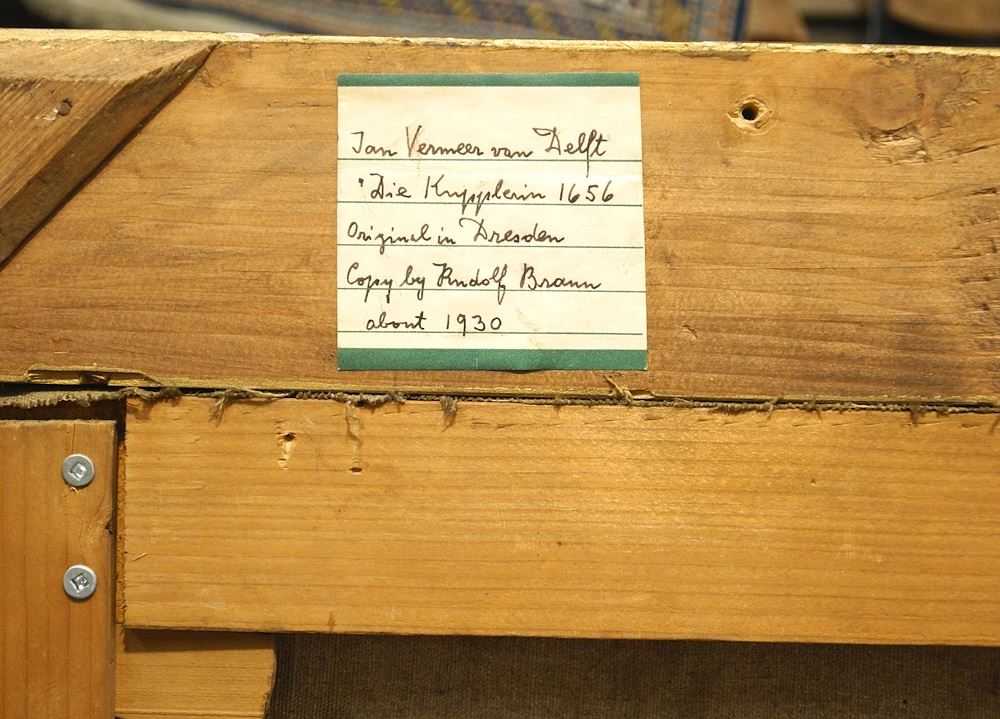 Jan Vermeer van Delft
"Die Kupplerin 1656
Original in Dresden
Copy by Rudolf Braun
about 1930